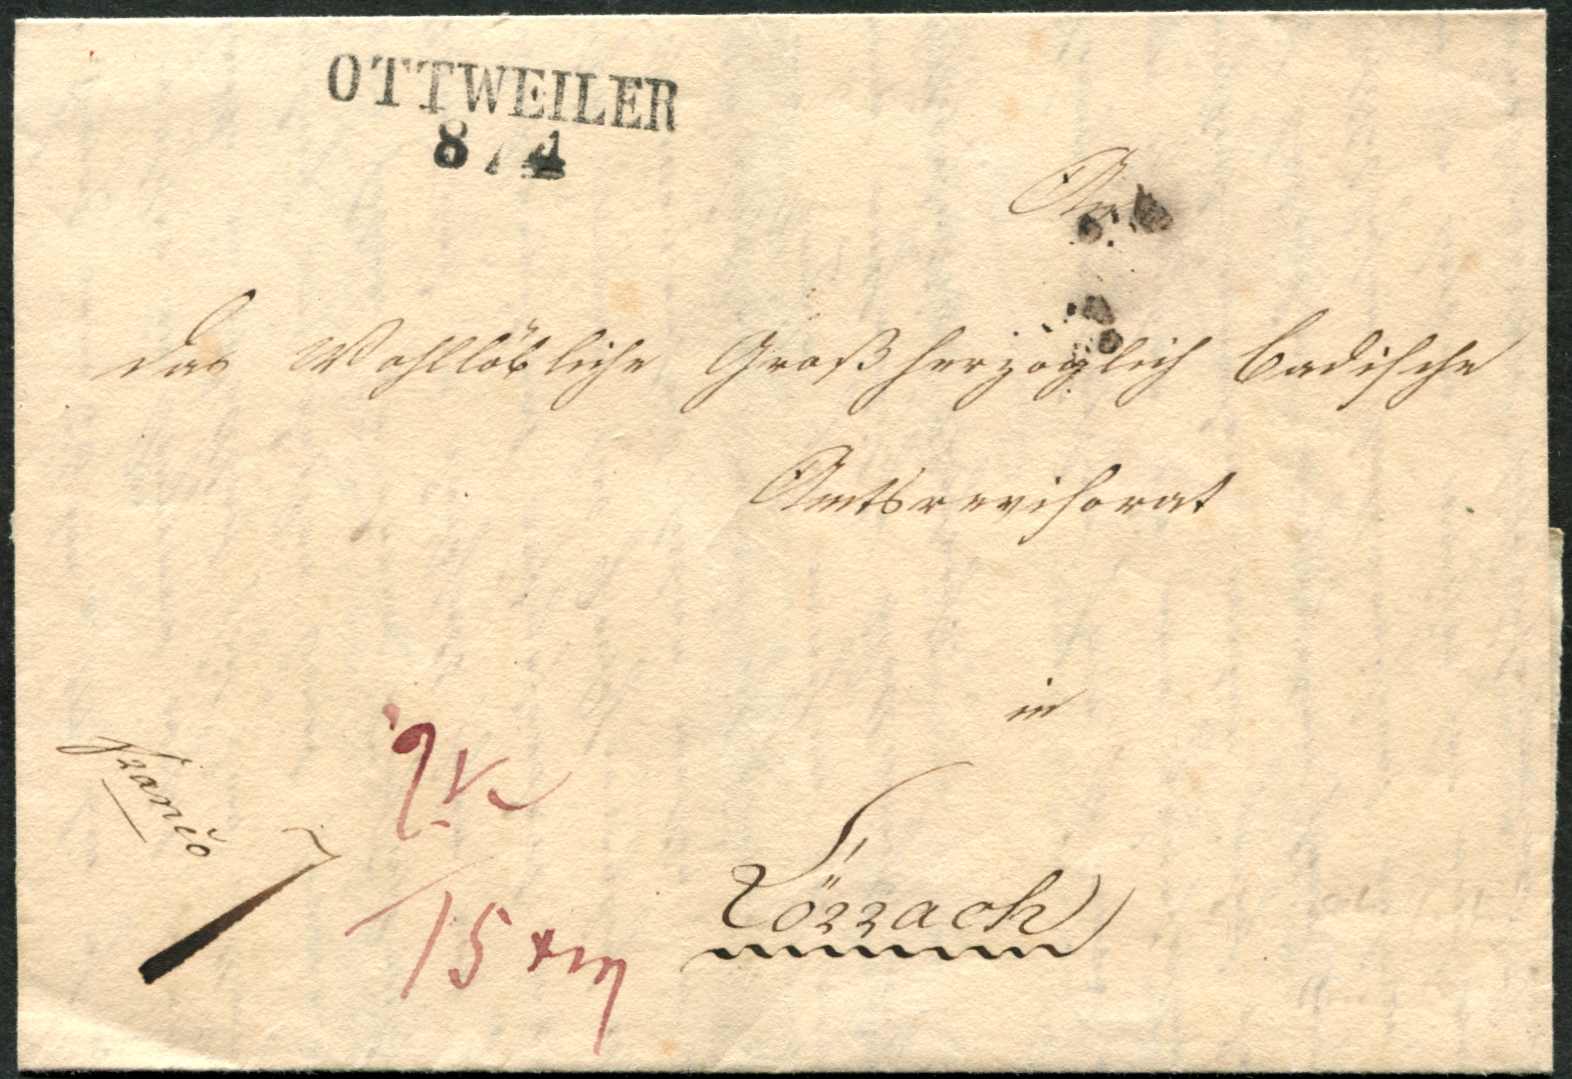 OTTWEILER
8 / 4
An
das Wohllöbliche Großherzoglich Badische
Amtsrevisorat
in
Lörrach
Franco
15